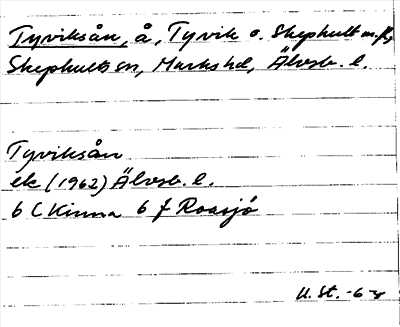 Tyviksån, å, Tyvik o. Skephult m.fl.,
Skephults sn, Marks hd, Älvsb. l.
Tyviksån
ek (1962) Älvsb. l.
6 C Kinna 6 f Roasjö
U. St. -64